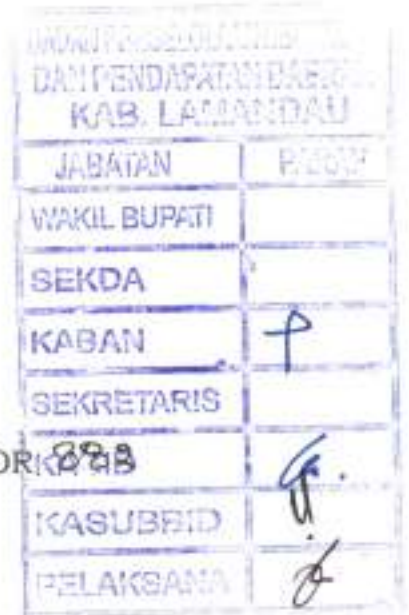 DAN PENDAPATAN DAERAH
KAB. LAMANDAU
JABATAN PARAF
WAKIL BUPATI
SEKDA
KABAN
SEKRETARIS
KASUBBID
PELAKSANA